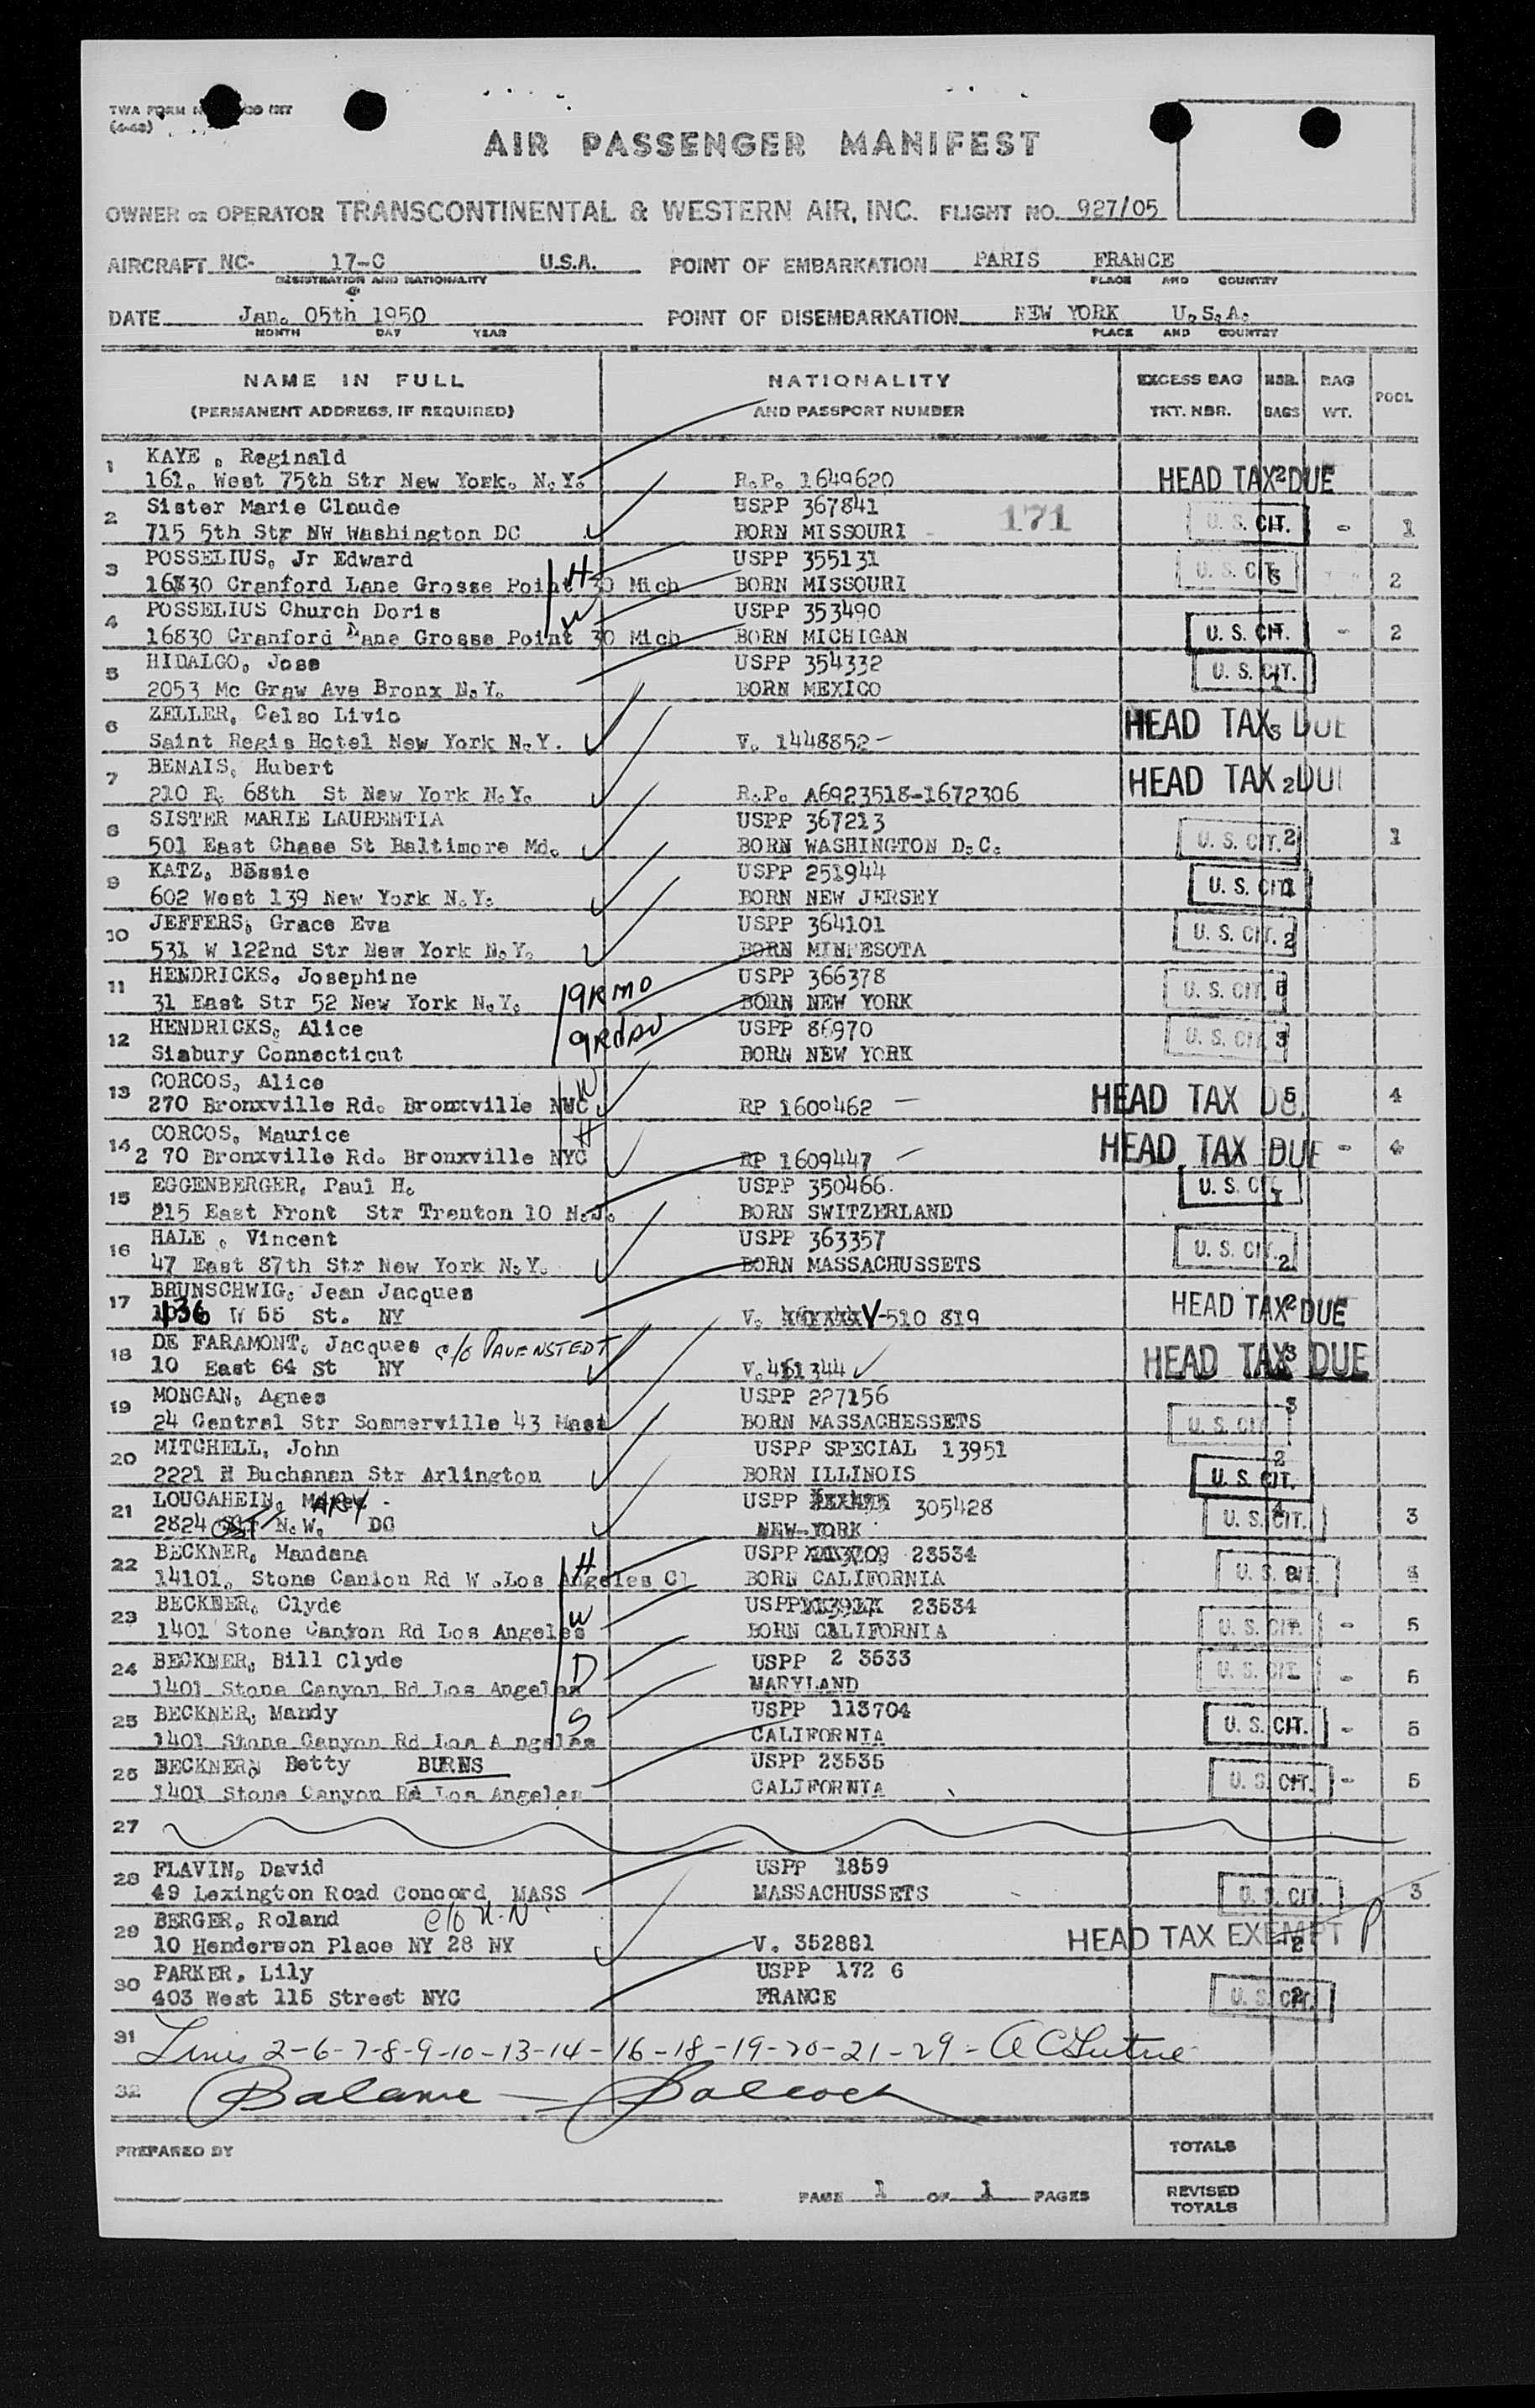 TWA FORM
(4-48)
AIR PASSENGER MANIFEST
OWNER OR OPERATOR TRANSCONTINENTAL & WESTERN AIR, INC. FLIGHT NO. 927/05
AIRCRAFT NC- 17-C U.S.A. POINT OF EMBARKATION PARIS FRANCE
REGISTRATION AND NATIONALITY PLACE AND COUNTRY
DATE Jan. 05th 1950 POINT OF DISEMBARKATION NEW YORK U.S.A.
MONTH DAY YEAR PLACE AND COUNTRY
NAME IN FULL NATIONALITY EXCESS BAG NBR. BAG POOL
(PERMANENT ADDRESS, IF REQUIRED) AND PASSPORT NUMBER TKT. NBR. BAGS WT.
1 KAYE , Reginald
161. West 75th Str New York. N.Y. R.P. 1649620 HEAD TAX DUE 2
2 Sister Marie Claude USPP 367841
715 5th Str NW Washington DC BORN MISSOURI 171 U. S. CIT. - 1
3 POSSELIUS, Jr Edward USPP 355131
16830 Cranford Lane Grosse Point 30 Mich H BORN MISSOURI U. S. CIT 2
4 POSSELIUS Church Doris USPP 353490
16830 Cranford Lane Grosse Point 30 Mich W BORN MICHIGAN U. S. CIT. - 2
5 HIDALGO, Jose USPP 354332
2053 Mc Graw Ave Bronx N.Y. BORN MEXICO U. S. CIT. 1
6 ZELLER, Celso Livio
Saint Regis Hotel New York N.Y. V. 1448852 - HEAD TAX DUE 3
7 BENAIS, Hubert
210 E. 68th St New York N.Y. R.P. A6923518-1672306 HEAD TAX 2 DUE
8 SISTER MARIE LAURENTIA USPP 367213
501 East Chase St Baltimore Md. BORN WASHINGTON D.C. U. S. CIT. 2 1
9 KATZ, BEssie USPP 251944
602 West 139 New York N.Y. BORN NEW JERSEY U. S. CIT. 1
10 JEFFERS, Grace Eva USPP 364101
531 W 122nd Str New York N.Y. BORN MINNESOTA U. S. CIT. 2
11 HENDRICKS. Josephine USPP 366378
31 East Str 52 New York N.Y. GRMO BORN NEW YORK U. S. CIT.
12 HENDRICKS, Alice USPP 86970
Siabury Connecticut BORN NEW YORK U. S. CIT. 3
13 CORCOS, Alice W
270 Bronxville Rd. Bronxville NYC RP 1600462 - HEAD TAX DUE 5 4
14 CORCOS, Maurice H
2 70 Bronxville Rd. Bronxville NYC RP 1609447 - HEAD TAX DUE - 4
15 EGGENBERGER, Paul H. USPP 350466.
215 East Front Str Trenton 10 N.J. BORN SWITZERLAND U. S. CIT. 1
16 HALE , Vincent USPP 363357
47 East 87th Str New York N.Y. BORN MASSACHUSSETS U. S. CIT. 2
17 BRUNSCHWIG, Jean Jacques
136 W 55 St. NY V. V-510 819 HEAD TAX 2 DUE
18 DE FARAMONT, Jacques c/o PAVENSTEDT
10 East 64 St NY V.461344 HEAD TAX DUE 3
19 MONGAN, Agnes USPP 227156
24 Central Str Sommerville 43 Mast BORN MASSACHESSETS U. S. CIT 3
20 MITCHELL, John USPP SPECIAL 13951
2221 N Buchanan Str Arlington BORN ILLINOIS U. S. CIT. 2
21 LOUCAHEIN, MARY USPP 305428
2824 N.W. DC NEW-YORK U. S. CIT. 4 3
22 BECKNER, Mandana H USPP 23534
14101. Stone Canion Rd W .Los Angeles Cl BORN CALIFORNIA U. S. CIT.
23 BECKNER, Clyde W USPP 23534
1401 Stone Canyon Rd Los Angeles BORN CALIFORNIA U. S. CIT. - 5
24 BECKNER, Bill Clyde D USPP 2 3533
1401 Stone Canyon Rd Los Angeles MARYLAND U. S. CIT. - 5
25 BECKNER, Mandy S USPP 113704
1401 Stone Canyon Rd Los A ngeles CALIFORNIA U. S. CIT. - 5
26 BECKNER, Betty BURNS USPP 23535
1401 Stone Canyon Rd Los Angeles CALIFORNIA U. S. CIT. - 5
27
28 FLAVIN, David USPP 1859
49 Lexington Road Concord MASS MASSACHUSSETS U. S. CIT. 3
29 BERGER, Roland c/o U.N
10 Henderson Place NY 28 NY V. 352881 HEAD TAX EXEMPT 2 P
30 PARKER, Lily USPP 172 6
403 West 115 Street NYC FRANCE U. S. CIT. 2
31 Lines 2-6-7-8-9-10-13-14-16-18-19-20-21-29-
32 Balance —
PREPARED BY TOTALS
PAGE 1 OF 1 PAGES REVISED TOTALS